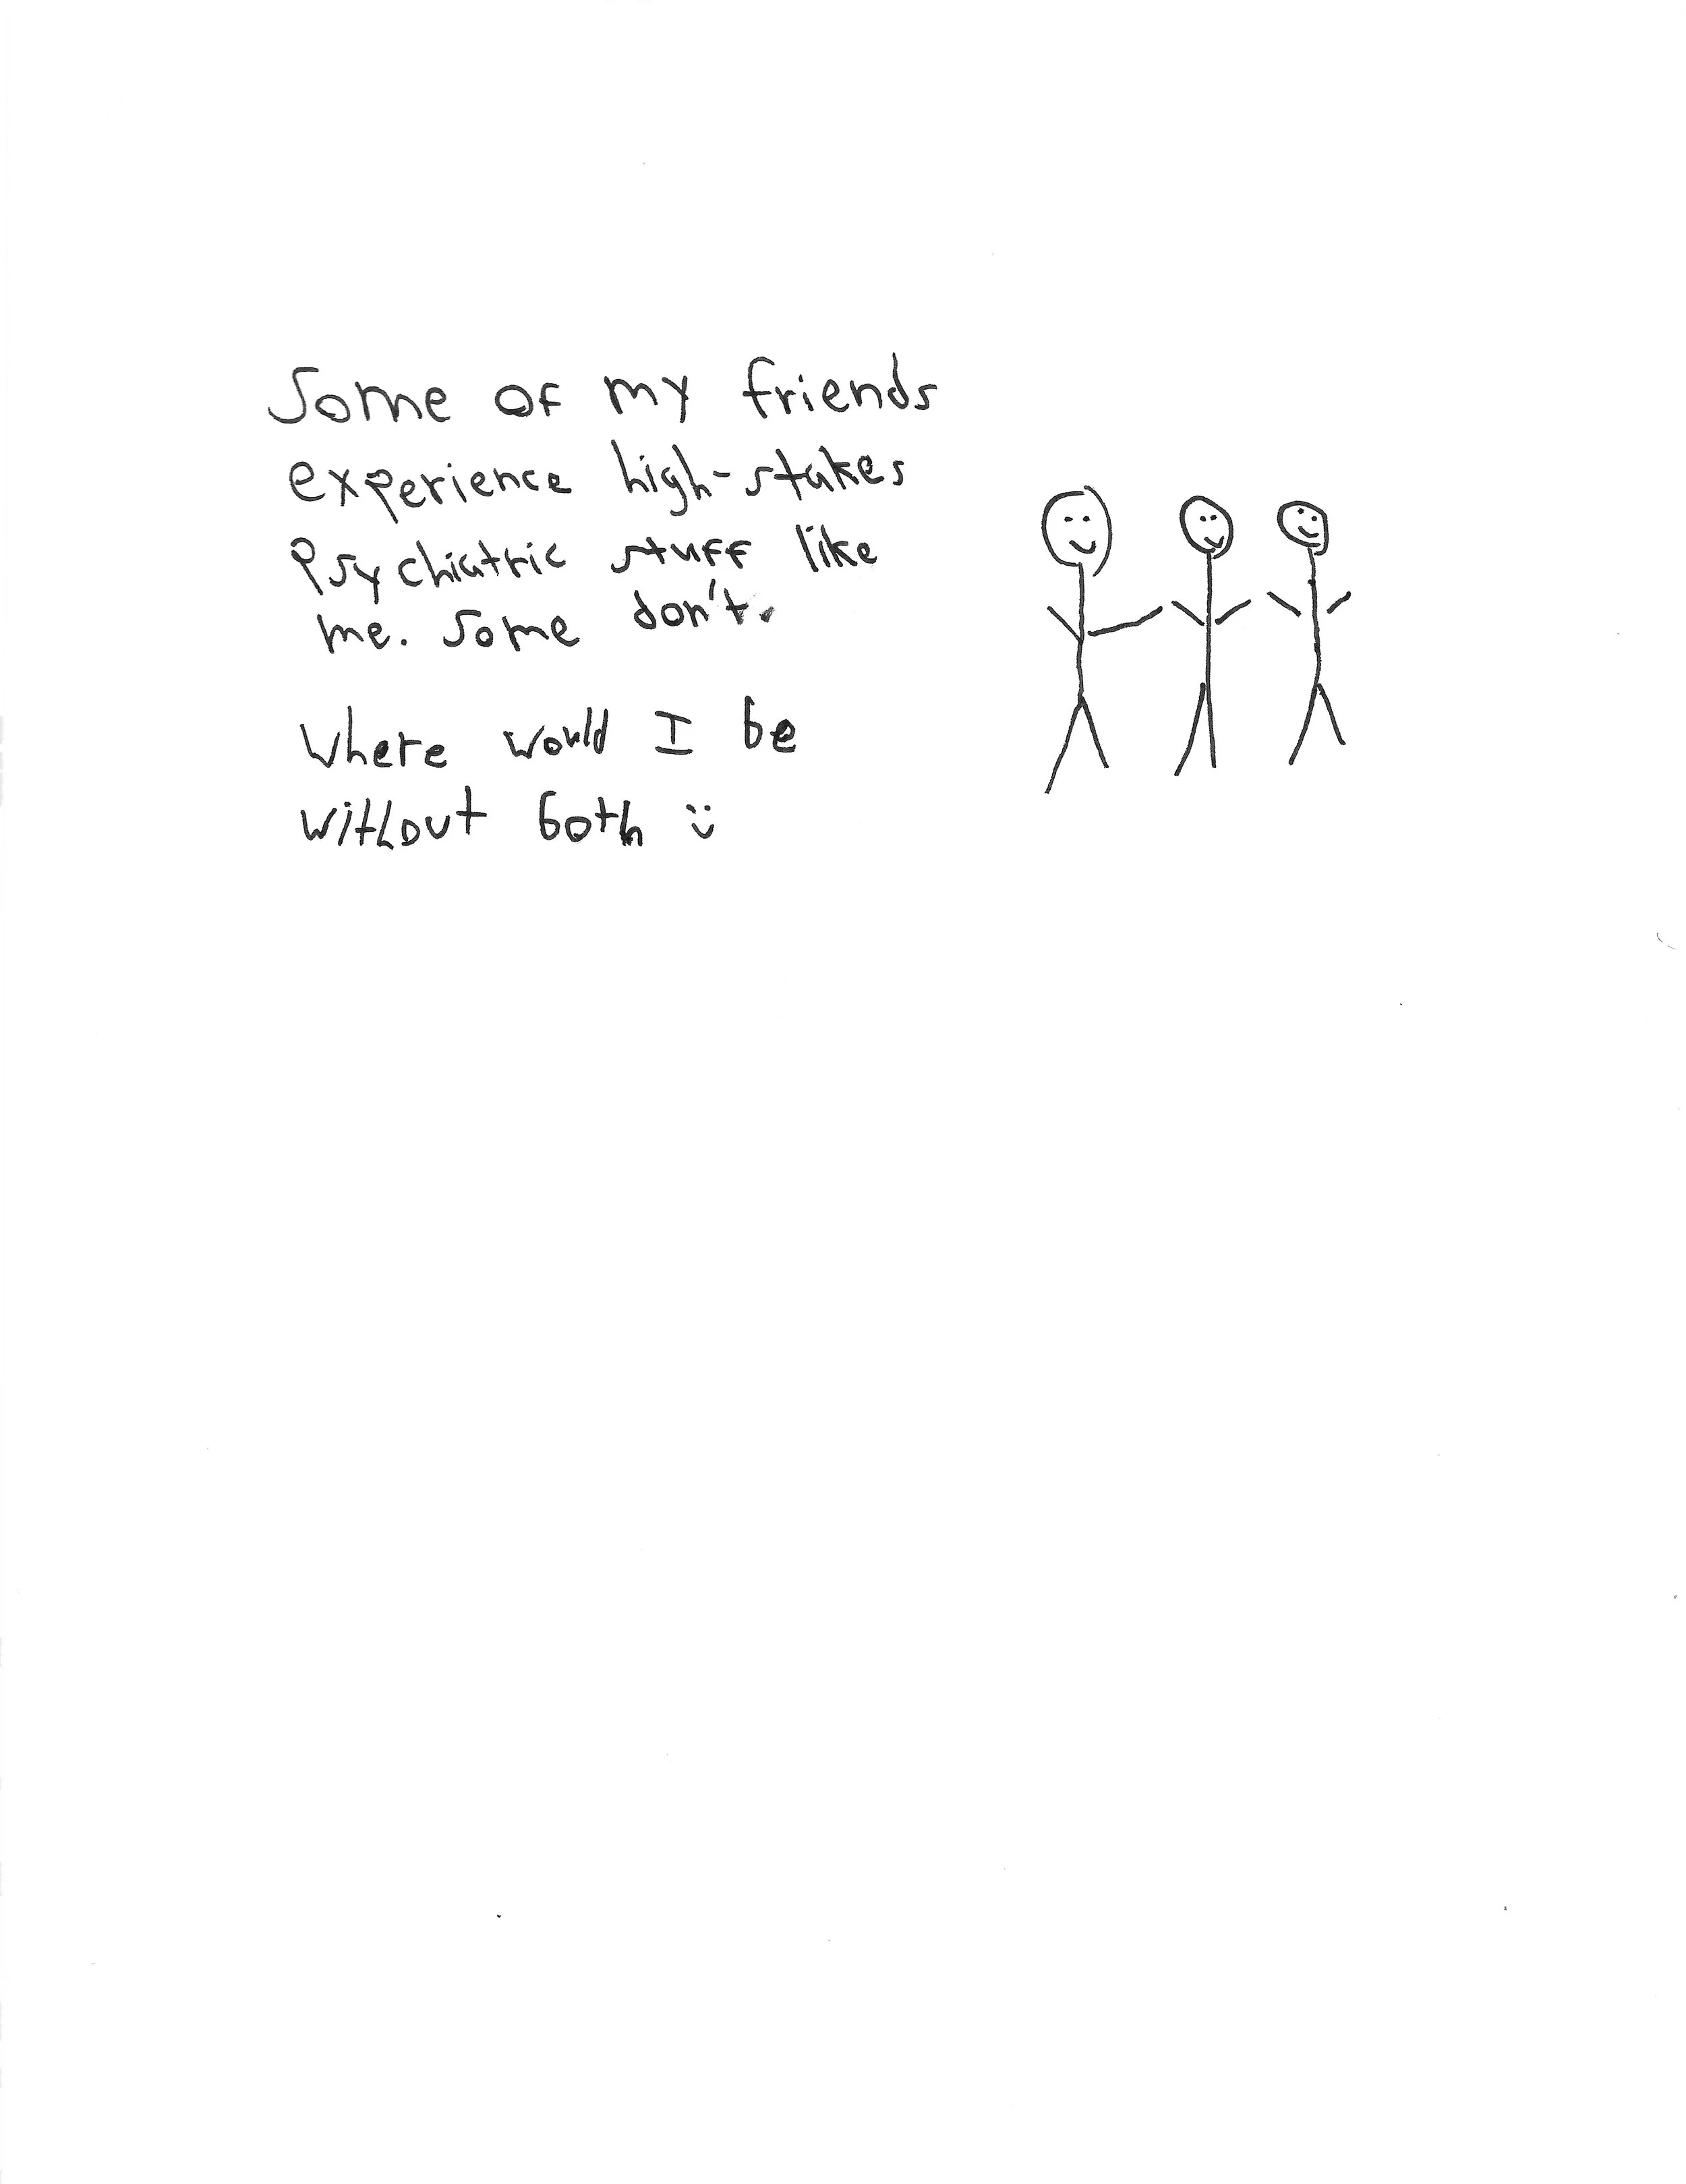 Some of my friends
experience high-stakes
Psychiatric stuff like
me. Some don't.
Where would I be
without both :)